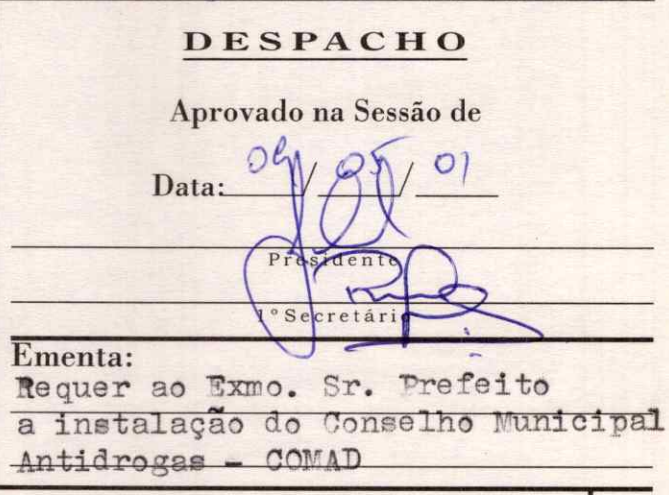 DESPACHO
Aprovado na Sessão de
Data: 09/05/01
Presidente
1º Secretário
Ementa:
Requer ao Exmo. Sr. Prefeito
a instalação do Conselho Municipal
Antidrogas - COMAD